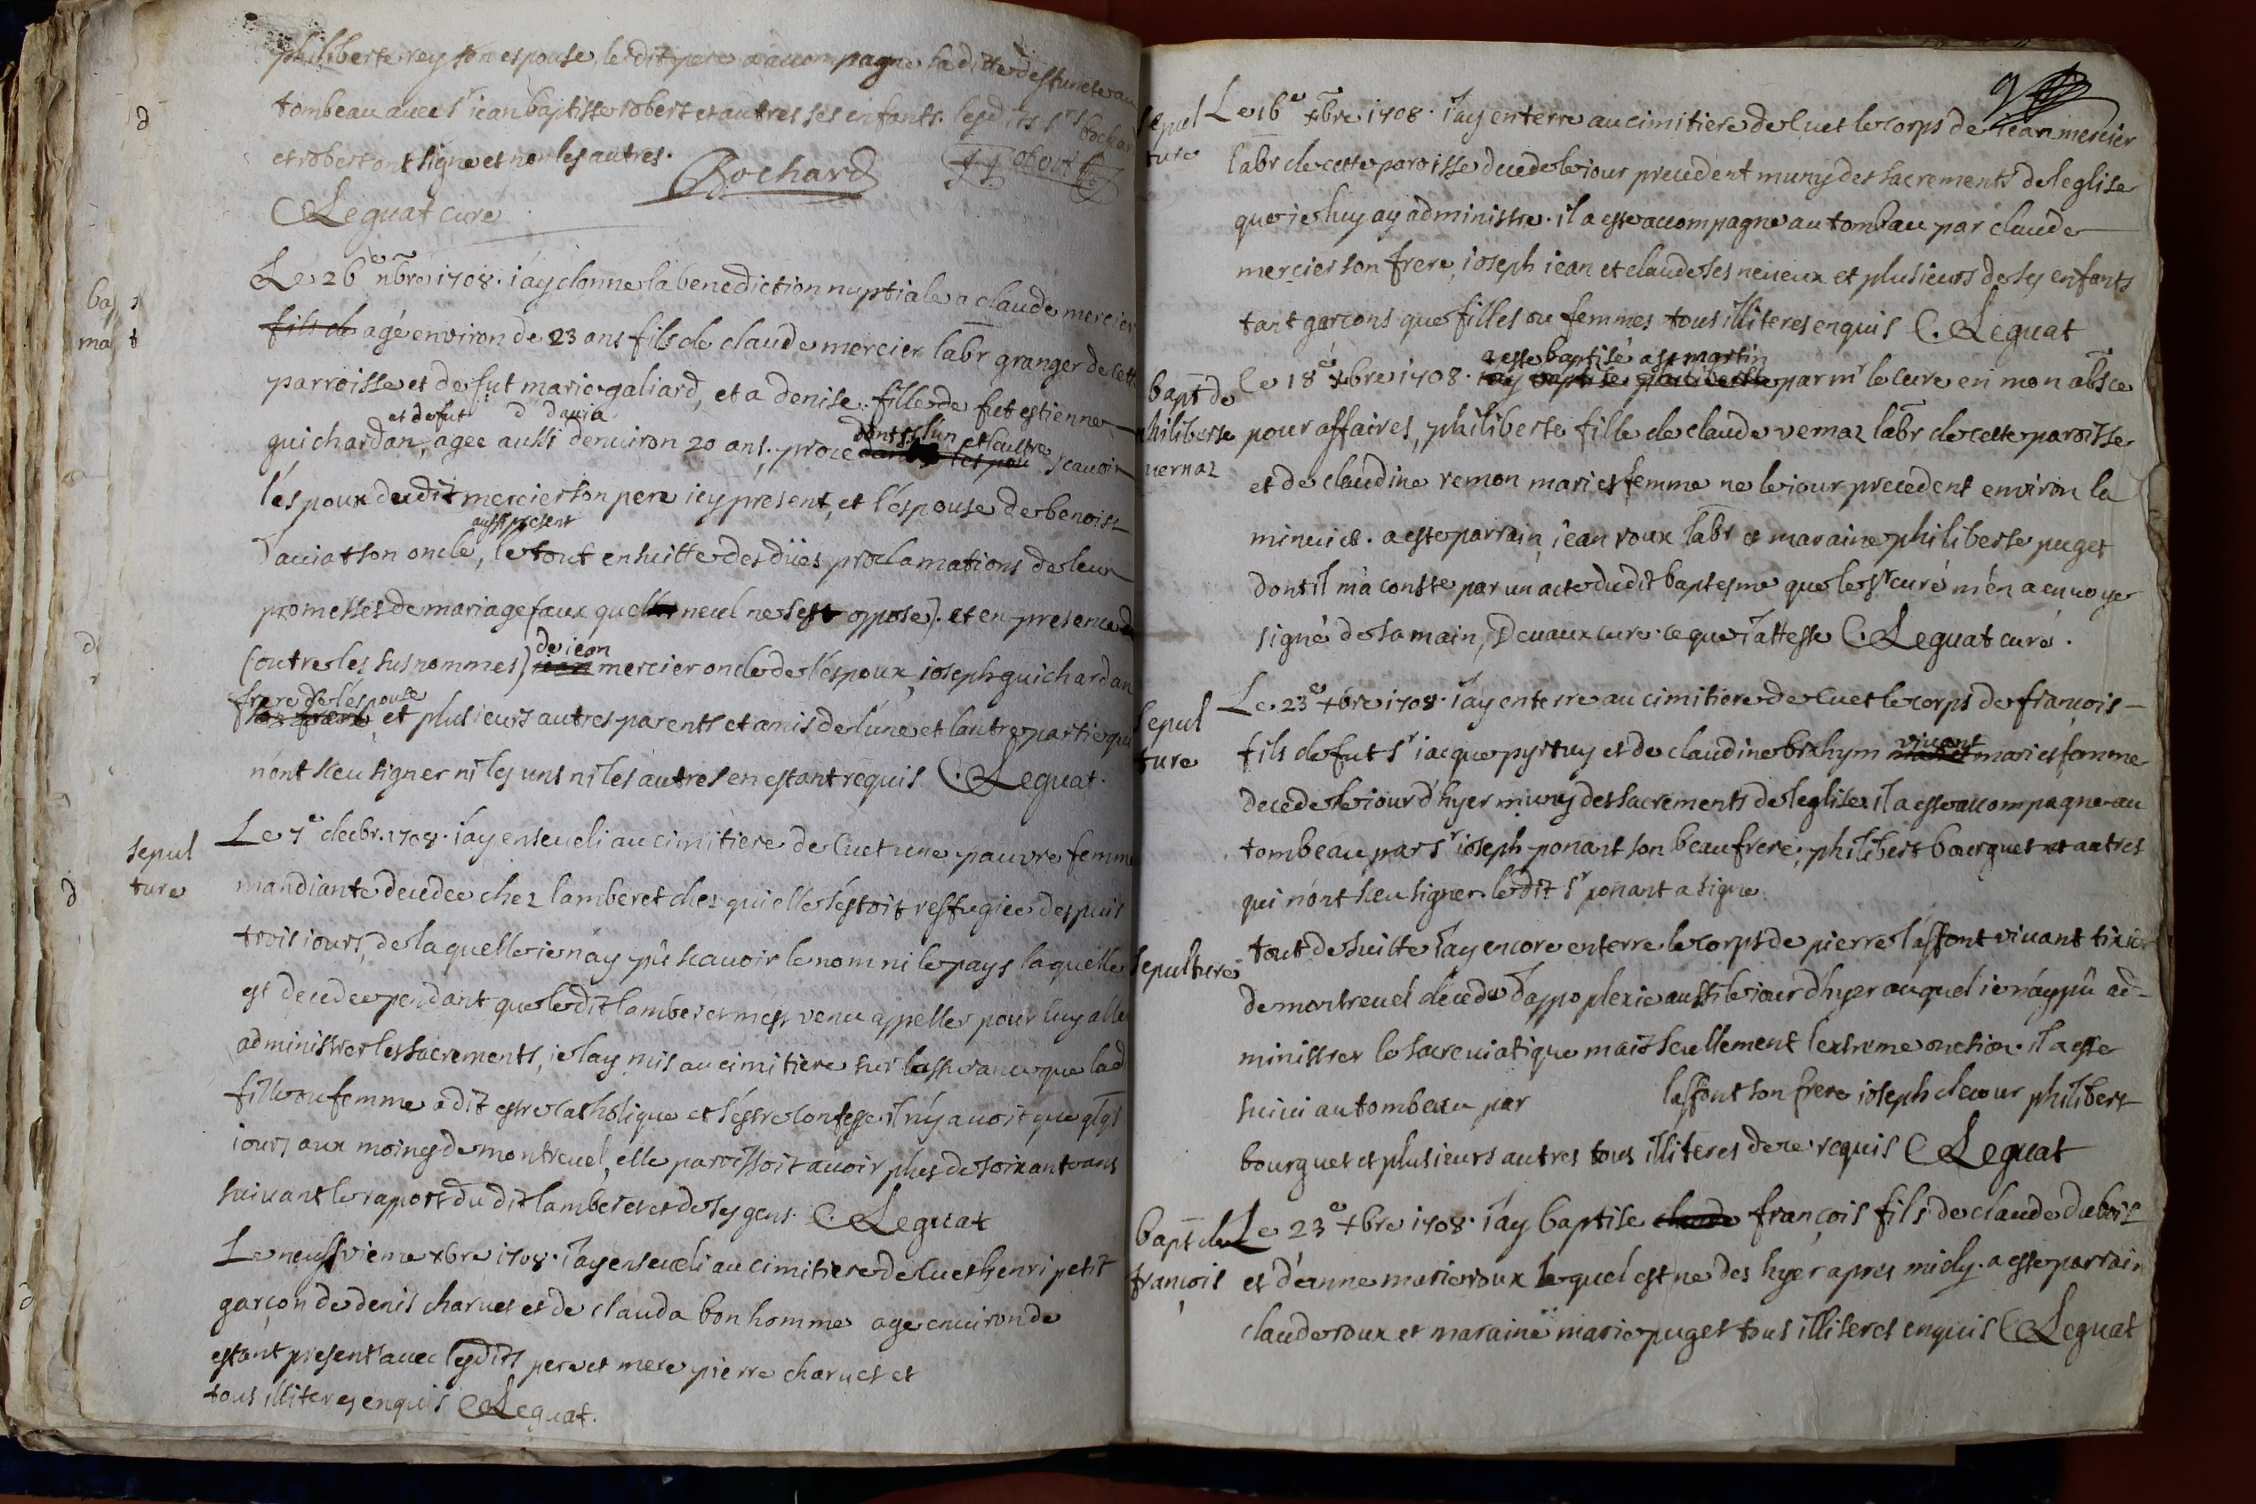 philiberte rey son espouse, ledit pere a accompagne laditte desfuncte au
tombeau avec sr jean baptiste robert et autres ses enfants. lesdits srs bochar
et robert ont signe et non les autres.
Bochard
Robert
C Leguat cure
Le 26e nbre 1708. j'ay donne la benediction nuptiale a claude mercier
fils de agé environ de 23 ans fils de claude mercier labr granger de cett
parroisse et de fut marie galiard, et a denise fille de fut estienne
et de fut
guichardan, agee aussi d'environ 20 ans, proce dants l'un et l'autre scavoir
l'espoux dudit mercier son pere icy present, et l'espouse de benoist
aussi present
son oncle, le tout ensuitte des dües proclamations de leur
promesses de mariage (aux quelles neul ne s'est oppose). et en presence d
de jean
(outre les susnommes) jean mercier oncle de l'espoux, joseph guichardan
frere de l'espouse
et plusieurs autres parents et amis de l'une et l'autre partie qui
n'ont sceu signer ni les uns ni les autres en estant requis C. Leguat.
sepul
ture
Le 7e decbr. 1708. j'ay enseveli au cimitiere de Cuet une pauvre femme
mandiante decedee chez lamberet chez qui elle s'estoit reffugiee despuis
trois jours, de laquelle je n'ay pû scavoir le nom ni le pays laquelle
est decedee pendant que ledit lamberet m'est venu appeller pour luy alle
administrer les sacrements, je l'ay mis au cimitiere sur l'assurance que lad
fille ou femme a dit estre catholique et s'estre confesse il n'y avoit que qlqs
jours aux moines de montrevel, elle paroissoit avoir plus de soixante ans
suivant le rapport du dit lamberet et de ses gens. C. Leguat
Le neufvieme xbre 1708. j'ay enseveli au cimitiere de cuet henri petit
garçon de denis charvet et de clauda bonhomme age environ de
estant present avec lesdits pere et mere pierre charvet et
tous illiteres enquis C Leguat.
sepul
ture
Le 16e xbre 1708. j'ay enterre au cimitiere de Cuet le corps de jean mercier
labr de cette paroisse decede le jour precedent muny des sacrements de leglise
que je luy ay administre. il a este accompagne au tombeau par claude
mercier son frere, joseph jean et claude ses neveux et plusieurs de ses enfants
tant garcons que filles ou femmes tous illiteres enquis C. Leguat
bapt de
philiberte
vernaz
a esté baptisé a st martin
le 18e xbre 1708. j'ay baptise philiberte par mr le cure en mon absce
pour affaires, philiberte fille de claude vernaz labr de cette paroisse
et de claudine remon maries femme ne le jour precedent environ la
minuict. a este parrain jean roux labr et maraine philiberte puget
dont il m'a conste par un acte dudit baptesme que le sr curé m'en a envoyer
signé de sa main, Devaux cure. ce que j'atteste C. Leguat curé.
sepul
ture
Le 23e xbre 1708. j'ay enterre au cimitiere de Cuet le corps de françois
vivant
fils de fut sr jacque et de claudine maries maries femme
decede le jour d'hyer muny des sacrements de leglise il a este accompagne au
tombeau par sr joseph ponant son beau frere, philibert bourguet et autres
qui n'ont sceu signer ledit sr ponant a signe
sepulture
tout de suitte j'ay encore enterre le corps de pierre laffont vivant tixier
de montrevel decede d'appoplexie aussi le jour d'hyer auquel je n'ay pû ad-
ministrer le sacre viatique mais seullement lextreme onction. il a este
suivi au tombeau par laffont son frere joseph decour philibert
bourguet et plusieurs autres tous illiteres de ce requis C Leguat
bapt de
françois
Le 23e xbre 1708. j'ay baptise claude françois fils de claude dubois
et d'anne marie roux lequel est ne des hyer apres midy. a este parrain
claude roux et maraine marie puget tous illiteres enquis C Leguat